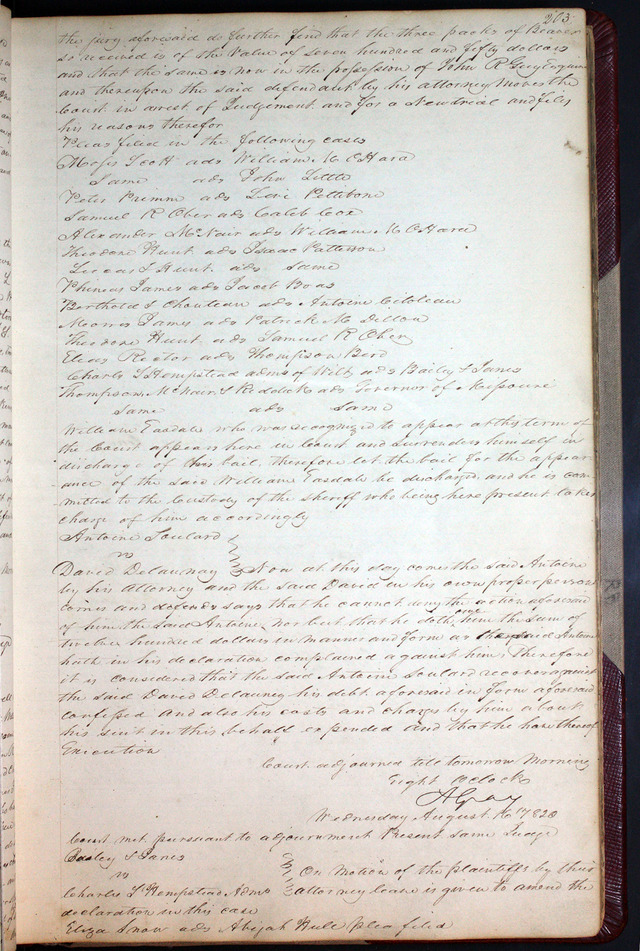 263
the jury aforesaid do further find that the three packs of Beaver
so received is of the value of seven hundred and fifty dollars
and that the same is now in the possession of John R
and thereupon the said defendant by his attorney moves the
Court in arrest of Judgement and for a New trial and files
his reasons therefor
Pleas filed in the following cases
Moses Scott ads William M OHara
Same ads John Little
Peter Primm ads Levi Pettibone
Samuel R Ober ads Caleb Cox
Alexander McNair ads William M OHara
Theodore Hunt ads Isaac Patterson
Lucas & Hunt ads Same
Phineas James ads Jacob Boas
Berthold & Chouteau ads Antoine Citoleau
Morris James ads Patrick M Dillon
Theodore Hunt ads Samuel R Ober
Elias Rector ads Thompson Bird
Charles S Hempstead adms of Wilt ads Bailey & Janes
Thompson McNair & Reddick ads Governor of Missouri
Same ads Same
William Tasdale who was recognized to appear at this term of
the Court appears here in Court and surrenders himself in
discharge of his bail, therefore let the bail for the appear
ance of the said William Tasdale be discharged and he is com
mitted to the Custody of the sheriff who being here present takes
charge of him accordingly
Antoine Soulard
vs
David Delaunay Now at this day comes the said Antoine
by his attorney and the said David in his own proper person
comes and defends says that he cannot deny the action aforesaid
of him the said Antoine, nor but that he doth owe him the Sum of
twelve hundred dollars in manner and form as the said Antoine
hath in his declaration complained against him Therefore
it is considered that the said Antoine Soulard recover against
the said David Delaunay his debt aforesaid in form aforesaid
confessed and also his costs and charges by him about
his suit in this behalf expended and that he have thereof
Execution
Court adjourned till tomorrow Morning
Eight oClock
A Gray
Wednesday August 16 1820
Court met pursuant to adjournment Present same Judge
Bailey & Janes
vs On Motion of the plaintiffs by their
Charles S Hempstead Adms attorney leave is given to amend the
declaration in this case
Eliza Snow ads Abijah Hull plea filed